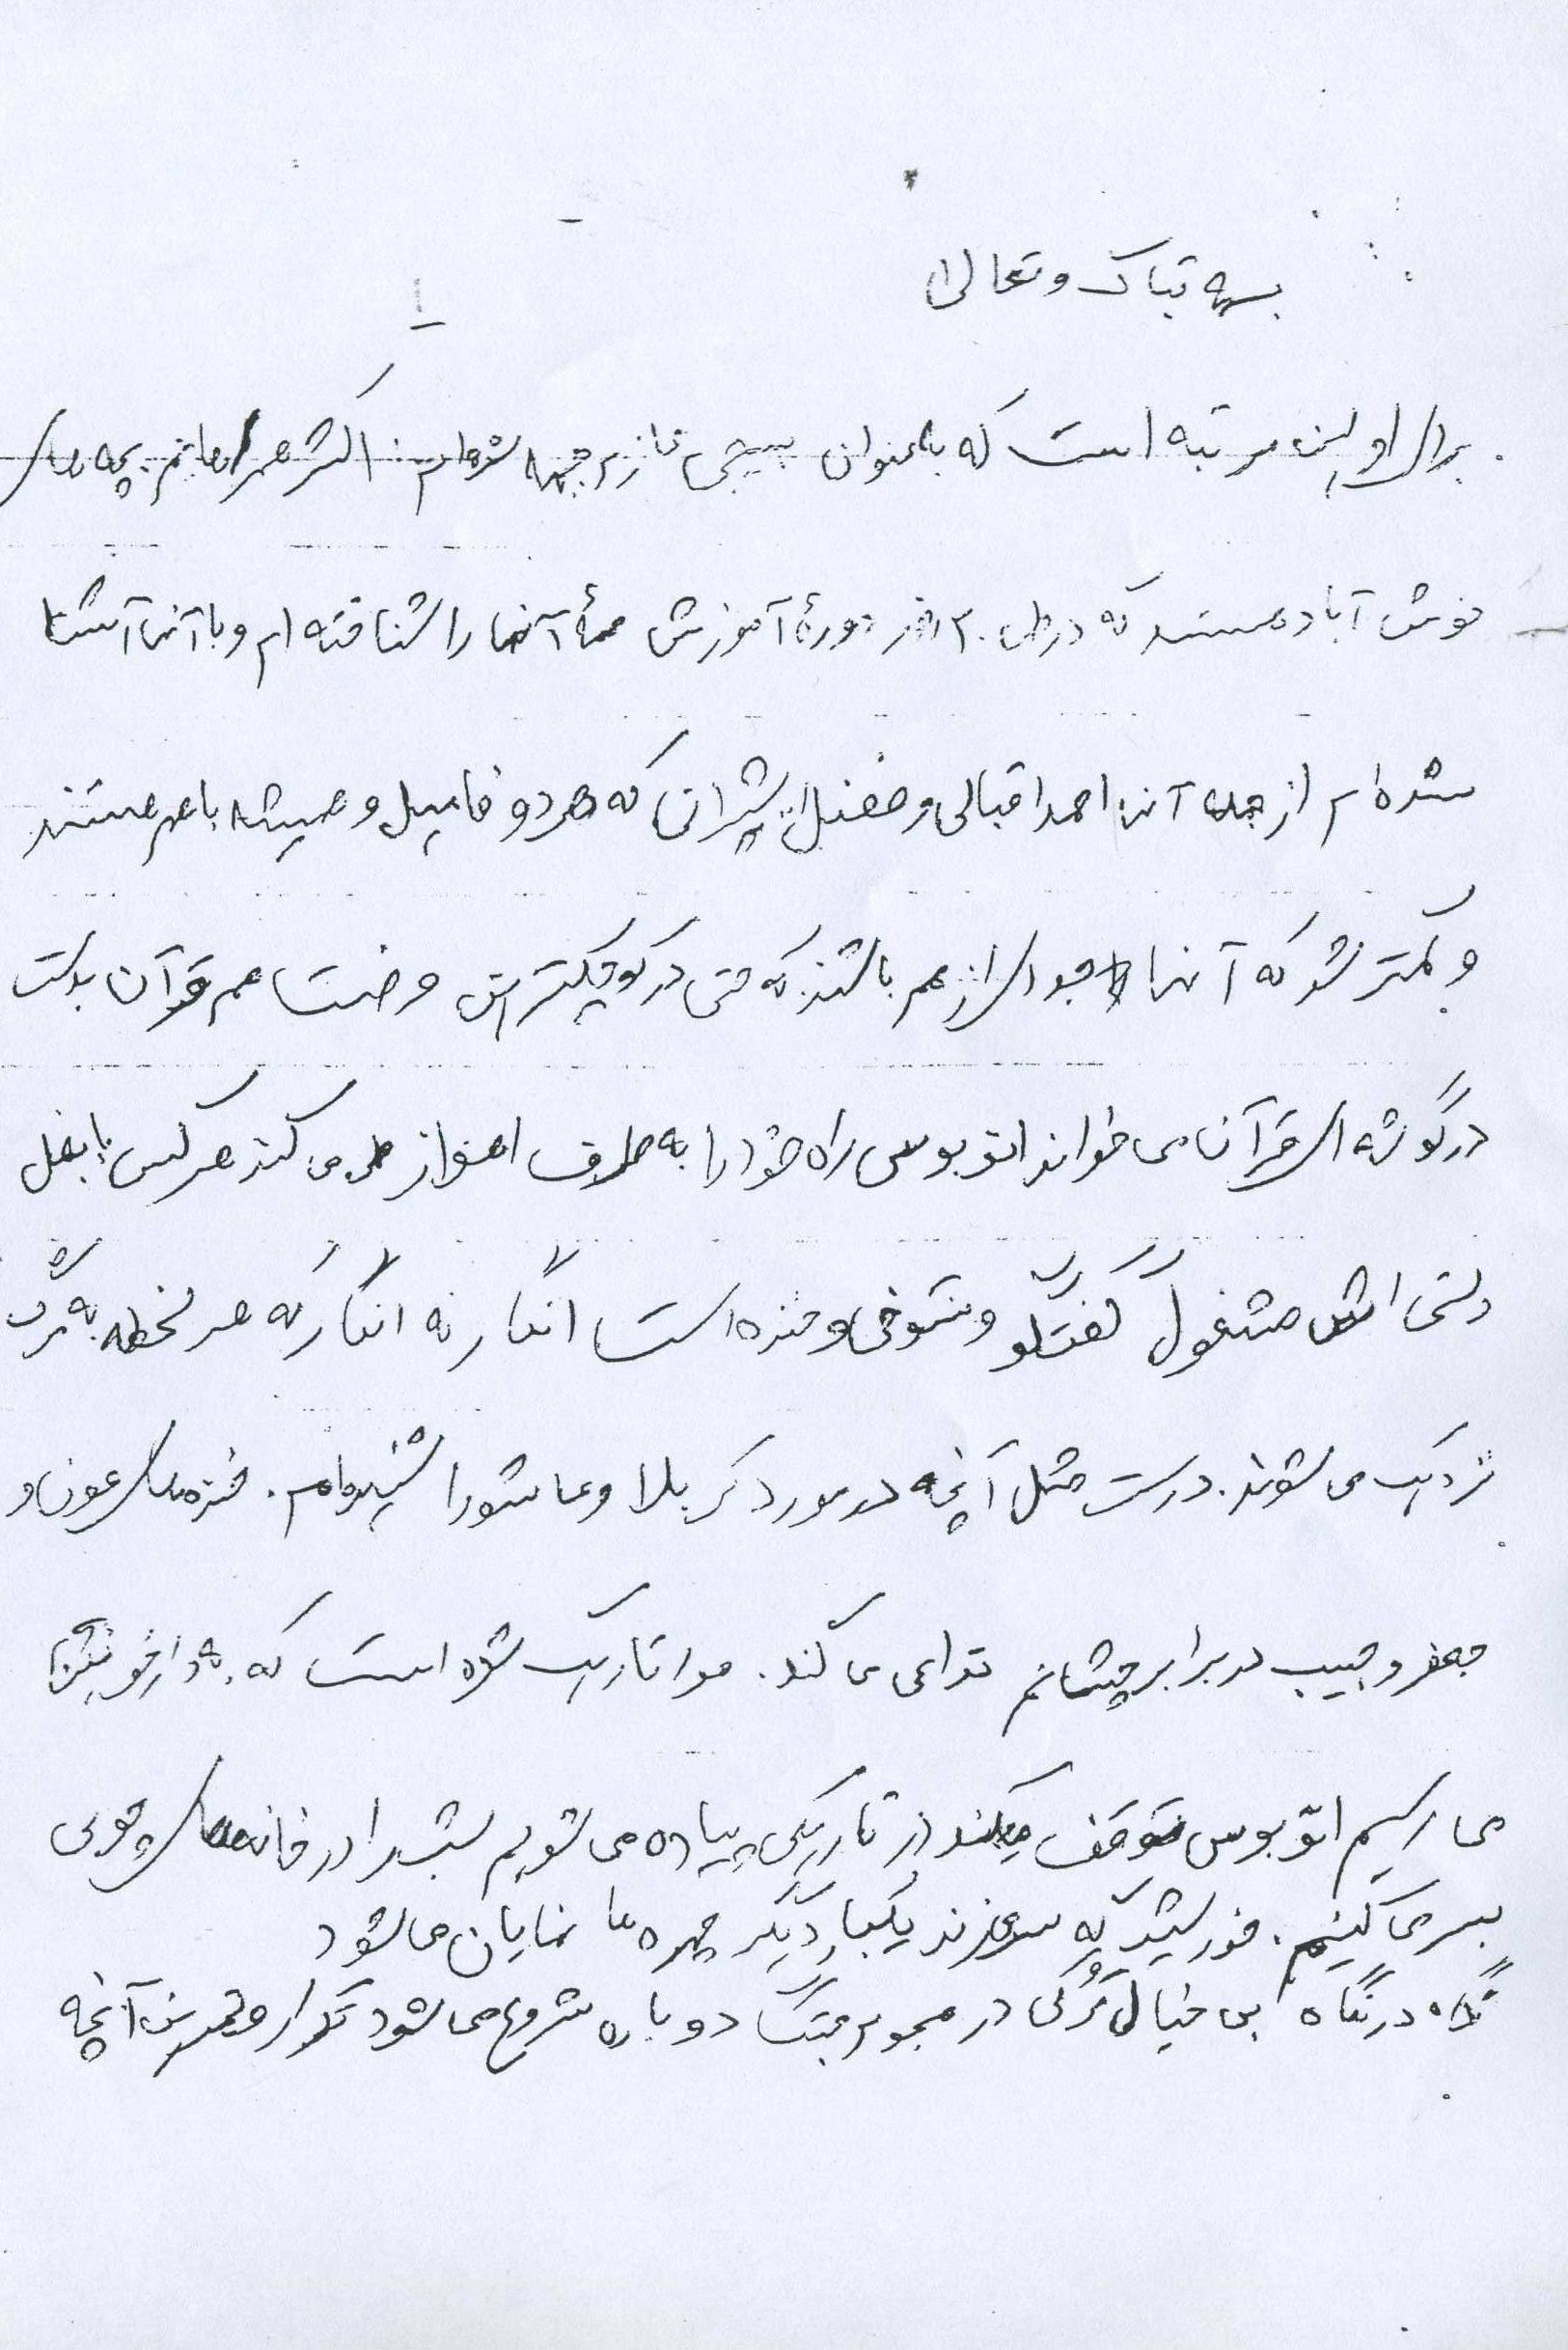 بسمه تبارک و تعالی
برای اولین مرتبه است که به عنوان بسیجی عازم جبهه شده‌ام. اکثر همراهانم بچه های
نوش آباد هستند که در طی ۳۰ روز دورهٔ آموزش همهٔ آنها را شناخته ام و با آنها آشنا
شده ام از جمله آنها احمد اقبالی و فضل الله شیرانی که هر دو فامیل و همیشه با هم هستند
و کمتر شد که آنها جدای از هم باشند که حتی در کوچکترین فرصت هم قرآن بدست
در گوشه ای قرآن می خوانند اتوبوس راه خود را به طرف اهواز طی می کند هر کس با بغل
دستی اش مشغول گفتگو و شوخی و خنده است انگار نه انگار که هر لحظه به مرگ
نزدیک می شوند. درست مثل آنچه در مورد کربلا و عاشورا شنیده‌ام. خنده های عون و
جعفر و حبیب در برابر چشمانم تداعی می کند. هوا تاریک شده است که به دارخوئین
می رسیم اتوبوس توقف میکند در تاریکی پیاده می شویم شب را در خانه‌های
بسر می کنیم. خورشید که سر می زند یکبار دیگر چهره ها نمایان می شود
نگاه در نگاه بی خیال مرگ در هجوم جنگ دوباره شروع می شود تکرار و تمرین آنچه